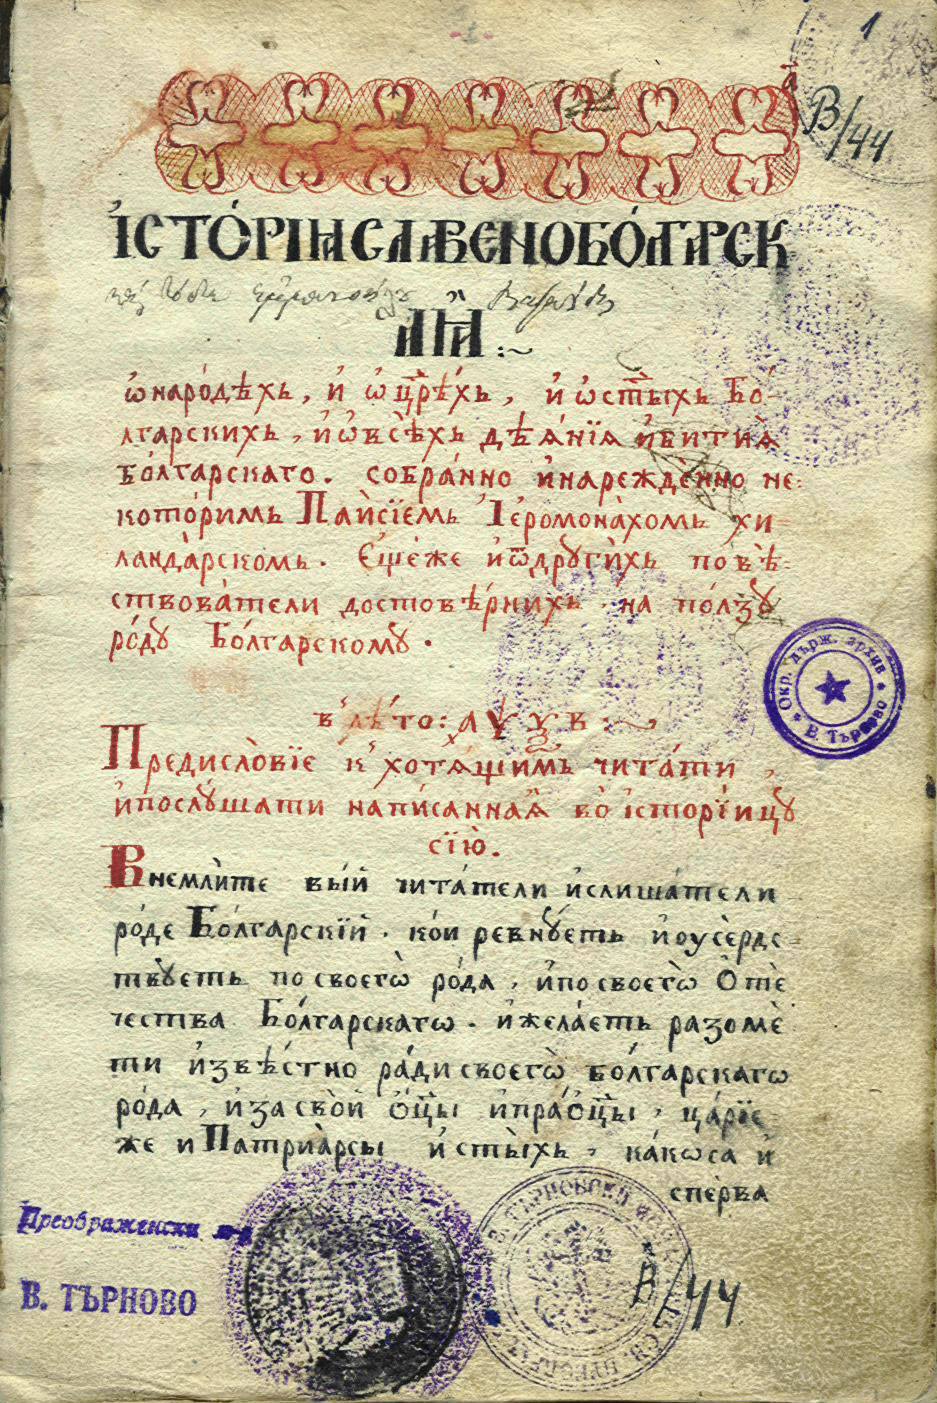 1
В/44
ІСТО́РІꙖ СЛАВЕНОБО́ЛГАРСК
АꙖ :~
ѡ наро́дѣхь, и҆ ѡ цр҃ѣ́хь, и҆ ѡ ст҃ы́хь Бо́-
лгарскихь, и҆ ѡ всѣхь дѣѧ́нїѧ и҆ битиѧ̀
Бо́лгарскаго. собра́нно и҆ нарежде́нно не-
кото́римь Паи́сїемь І҆еромона́хомь хи-
ланда̀рскомь. Еще́же и҆ ѿ дрꙋги́хь повѣ̀-
ствова́тели достовѣ́рнихь, на по́лзꙋ
ро́дꙋ Бо́лгарскомꙋ.
в лѣ́то: ҂аѱѯв :~
Предисло̀вїе к хотѧ́щимь чита́ти,
и҆ послꙋ́шати напи́саннаѧ̀ во і҆сторїицꙋ
сїю̀.
Внемли́те вы́й чита́тели и҆ слиша́тели
ро́де Бо́лгарскїй. ко́и ревнꙋ́еть и҆ оусе́рдс-
твꙋеть по своегѡ̀ ро́да, и҆ по своегѡ̀ Ѻтѐ
чества Бо́лгарскагѡ. и҆ жела́еть разомѐ
ти и҆звѣ́стно ра́ди своегѡ̀ бо́лгарскагѡ
ро́да, и҆ за сво́й ѻц҃ы и҆ праѻц҃ы, ца́рїе-
же и Патриа̀рсы и҆ ст҃ы́хь, ка́кѡ са и҆
спе́рва
Окр. държ. архив
В. Търново
Преображенски м-р
В. ТЪРНОВО
В/44